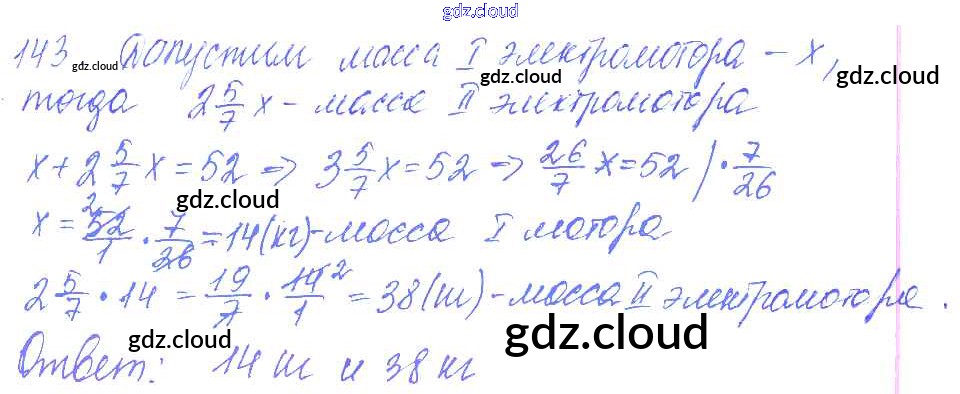 gdz.cloud
gdz.cloud
143. Допустим масса I электромотора – x,
gdz.cloud
тогда 2 5/7 x – масса II электромотора
x + 2 5/7 x = 52 => 3 5/7 x = 52 => 26/7 x = 52 | · 7/26
gdz.cloud
x = 52/1 · 7/26 = 14 (кг) – масса I мотора
gdz.cloud
2 5/7 · 14 = 19/7 · 14/1 2 = 38 (кг) – масса II электромотора.
gdz.cloud
gdz.cloud
Ответ: 14 кг и 38 кг